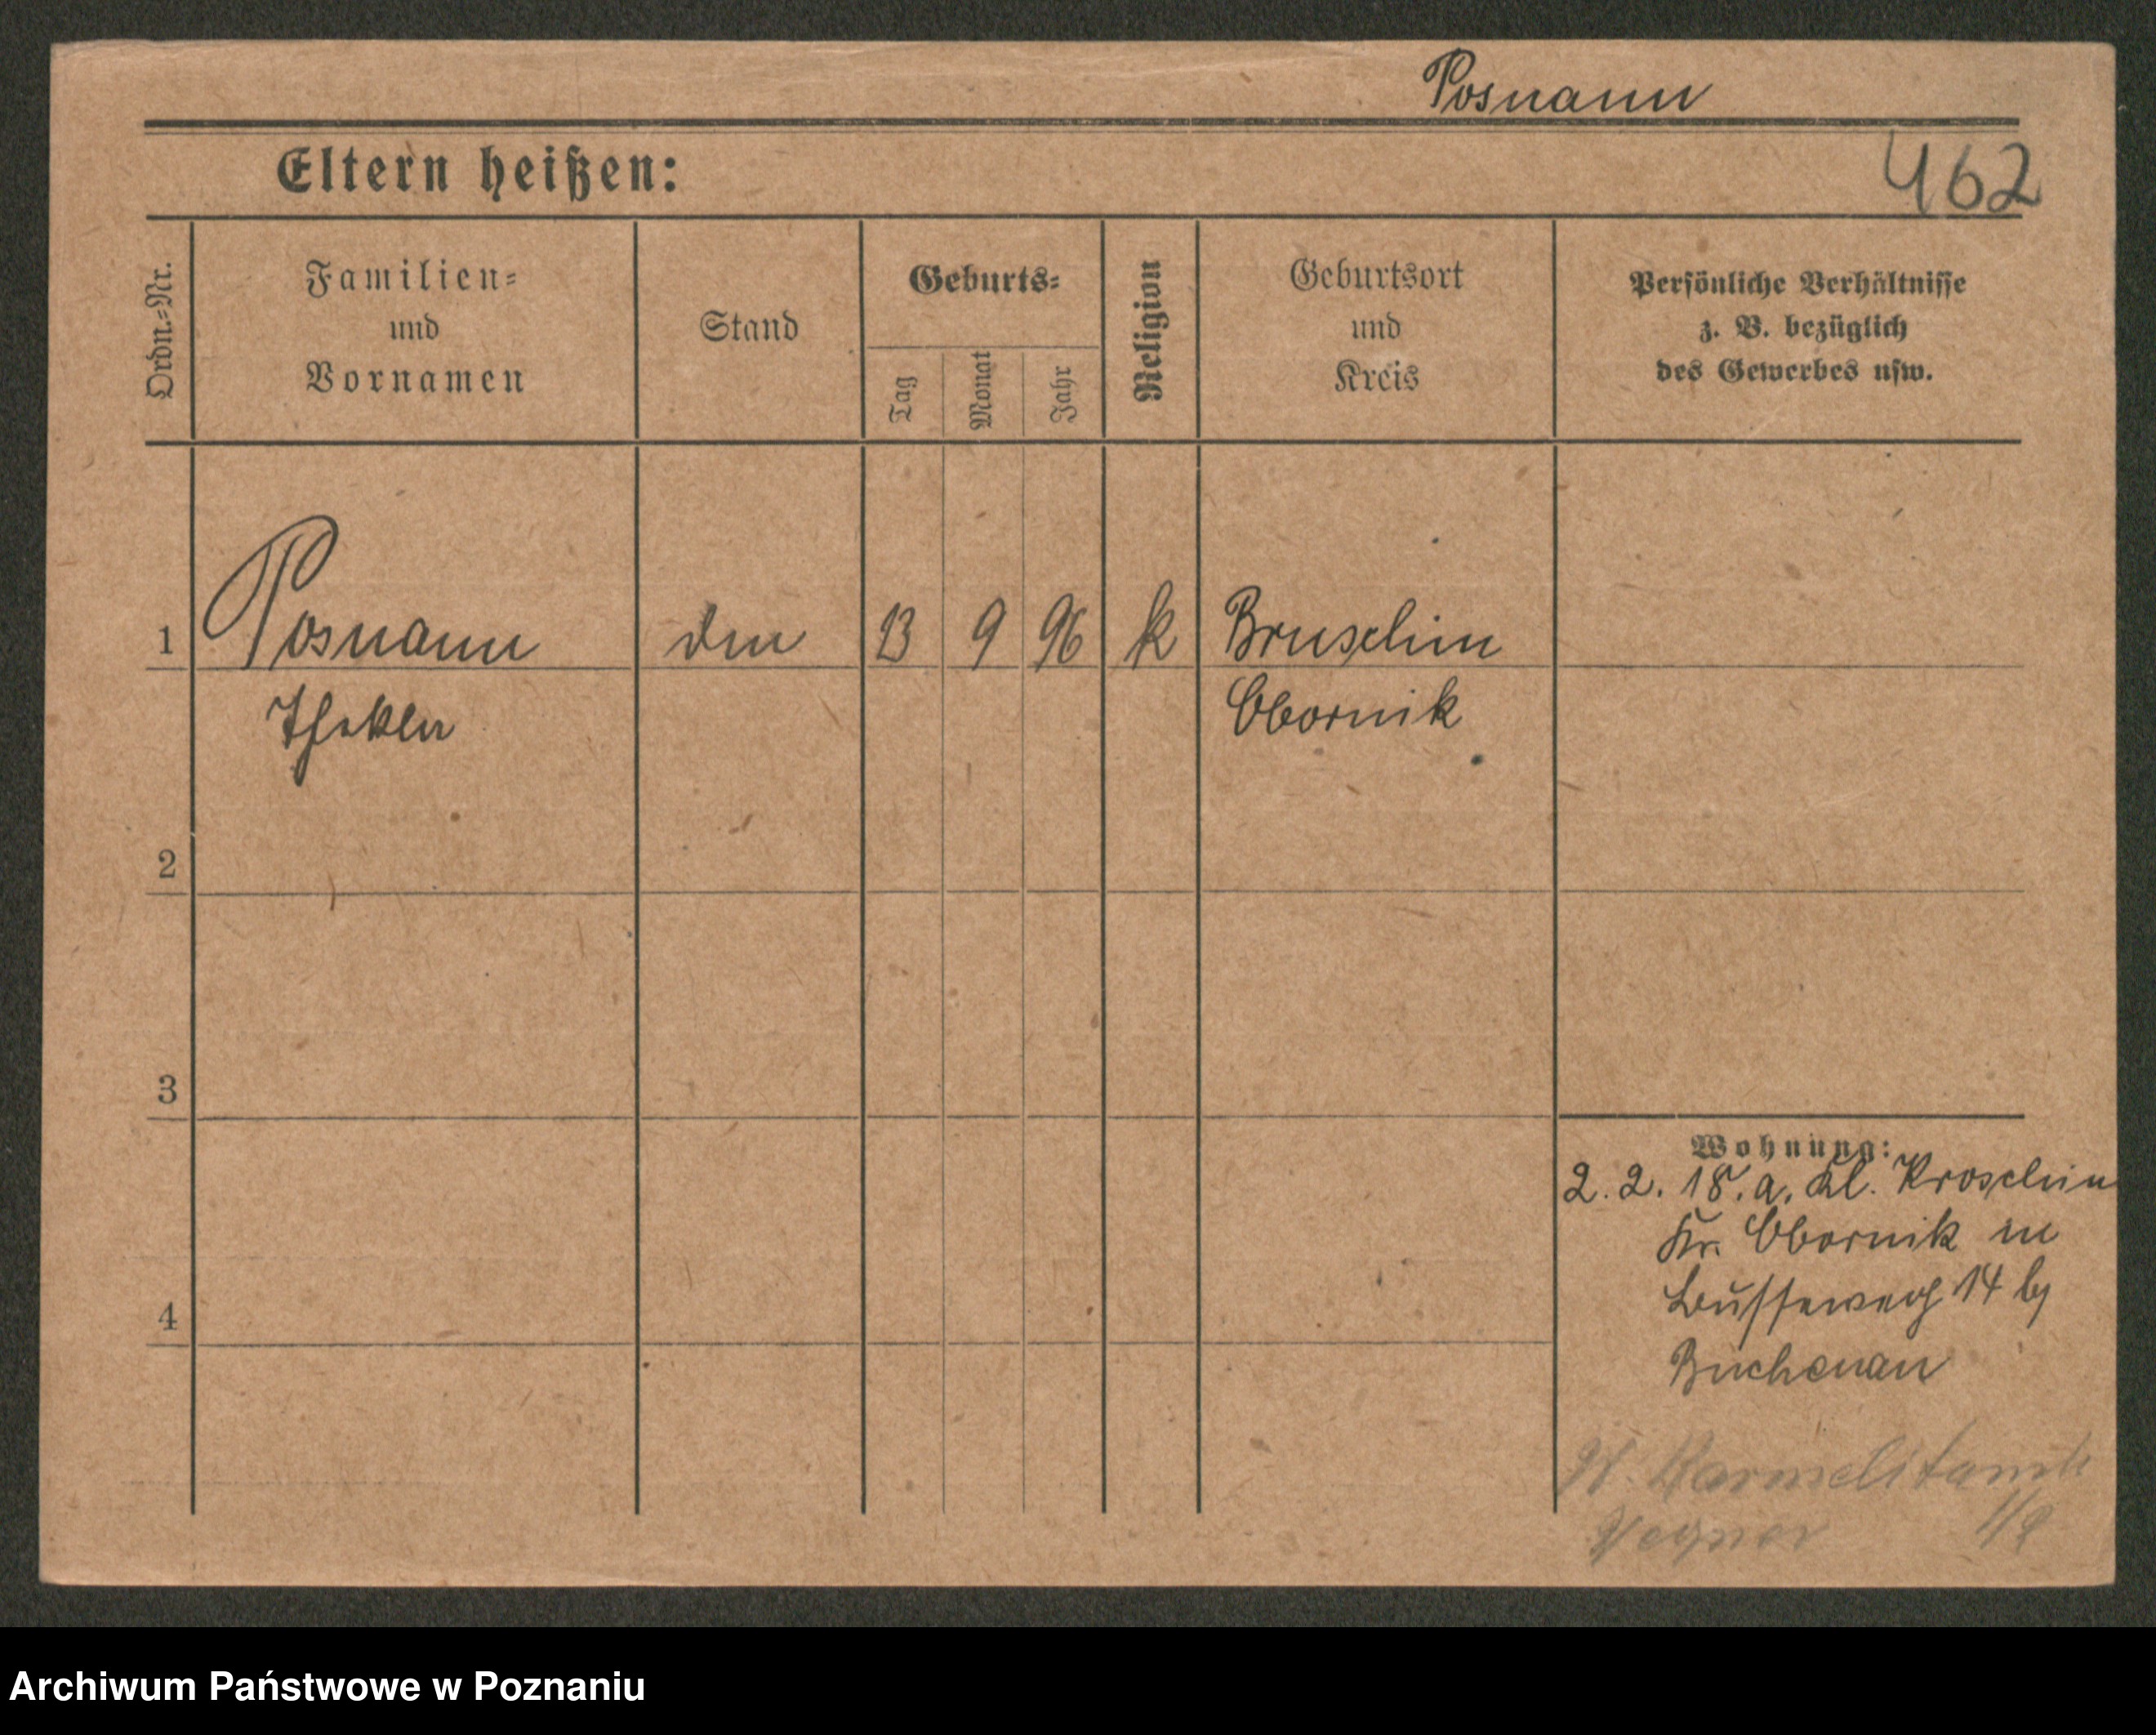 Posnann
Eltern heißen:
462
Ordn.=Nr.
Familien=
und
Vornamen
Stand
Geburts=
Tag
Monat
Jahr
Religion
Geburtsort
und
Kreis
Persönliche Verhältnisse
z. B. bezüglich
des Gewerbes usw.
1
Posnann
13 9 96 k Bruschin
Thekla
Obornik
2
3
4
Wohnung:
2. 2. 18. a. Kl. Kroschin
Kr. Obornik in
14 bj
Buchenau
Archiwum Państwowe w Poznaniu